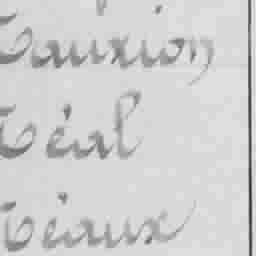 Tauxion
Téal
Téaux